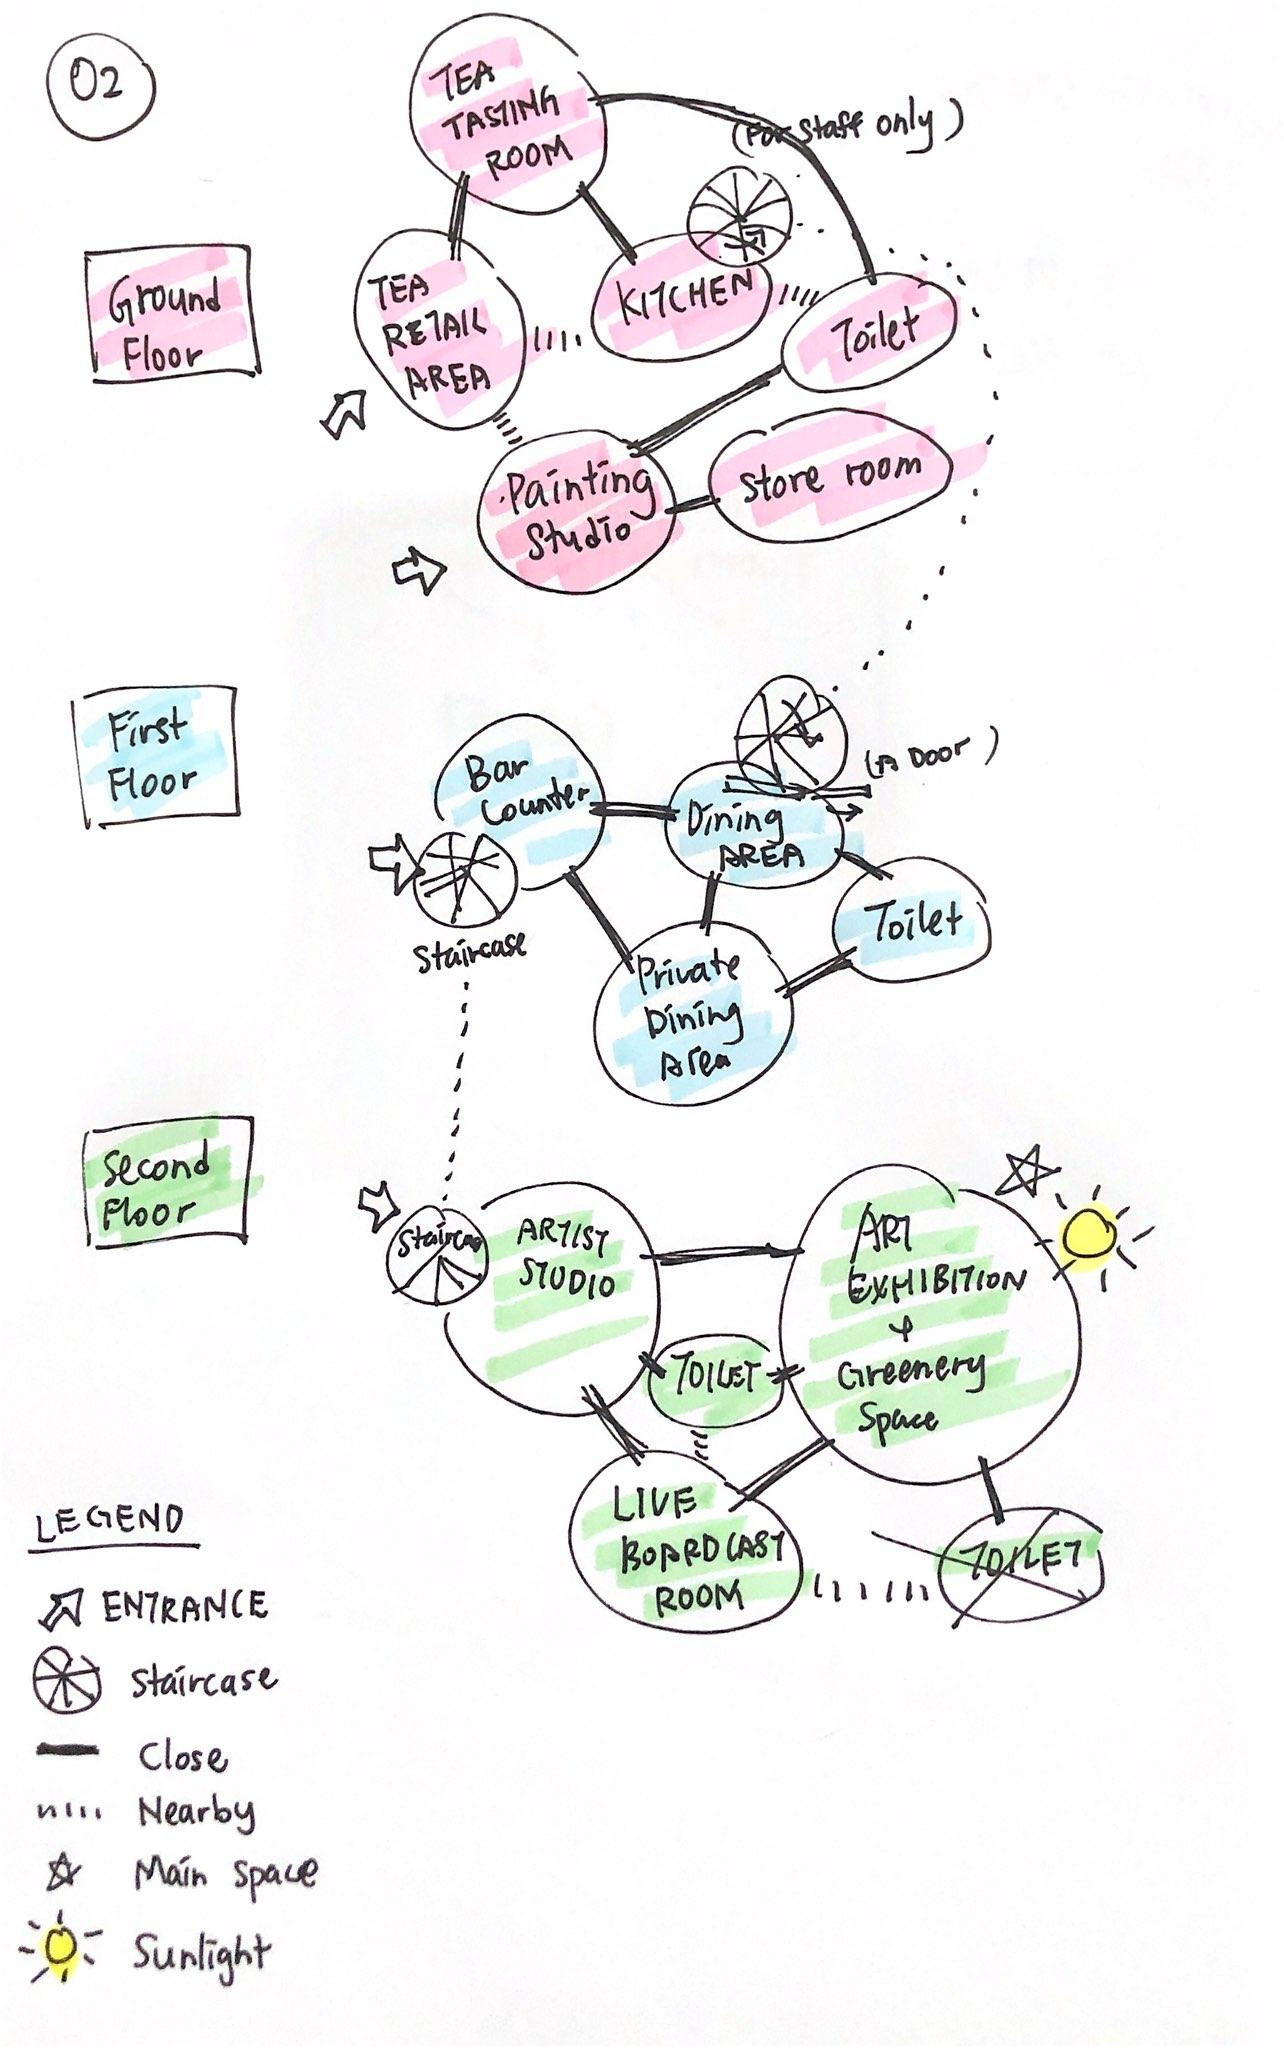 02
TEA
TASTING
ROOM
(For staff only)
Ground
Floor
TEA
RETAIL
AREA
KITCHEN
Toilet
Painting
Studio
Store room
First
Floor
Bar
Counter
Dining
AREA
(A Door)
Staircase
Toilet
Private
Dining
Area
Second
Floor
Staircase
ARTIST
STUDIO
ART
EXHIBITION
+
Greenery
Space
TOILET
LIVE
BOARDCAST
ROOM
TOILET
LEGEND
ENTRANCE
Staircase
Close
Nearby
Main space
Sunlight